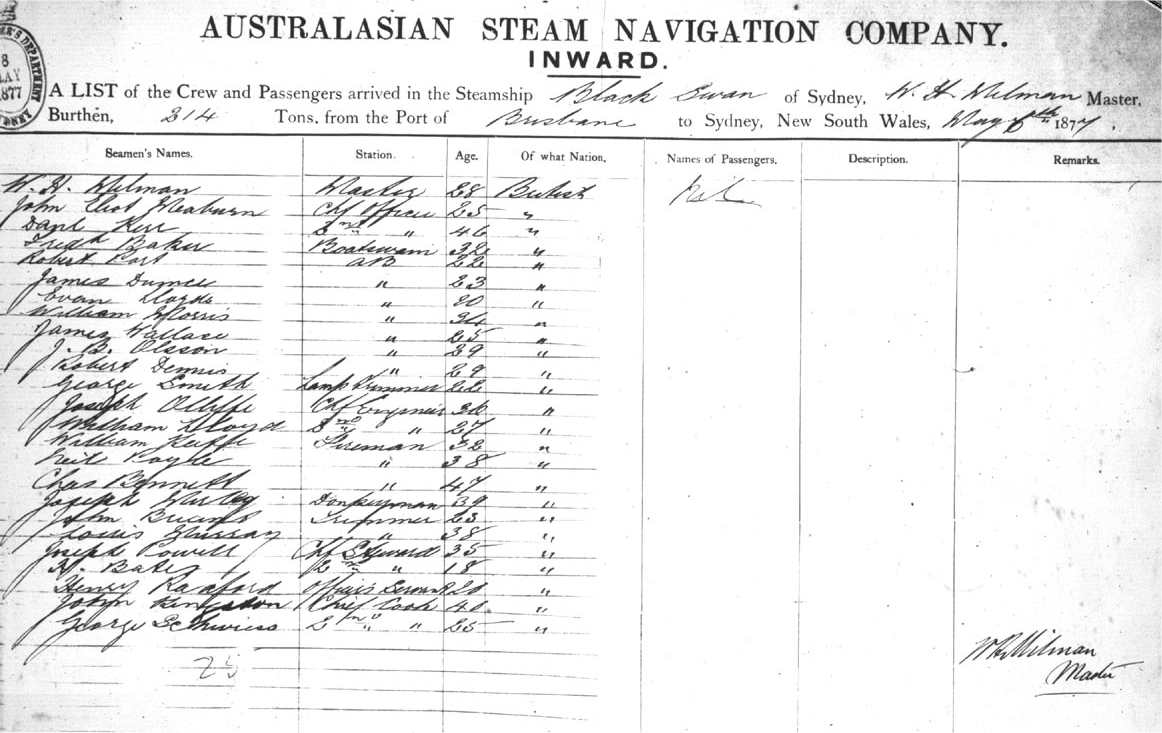 AUSTRALASIAN STEAM NAVIGATION COMPANY.
INWARD.
A LIST of the Crew and Passengers arrived in the Steamship Black Swan of Sydney, W. H. Milman Master,
Burthen, 314 Tons, from the Port of Brisbane to Sydney, New South Wales, May 1877.
Seamen's Names. Station. Age. Of what Nation. Names of Passengers. Description. Remarks.
W. H. Milman Master 28 British Nil
John Chf Officer 25 "
Kerr 2nd " 46 "
Baker Boatswain 32 "
Robert AB 22 "
James " 23 "
Evan Lloyd " 20 "
William Morris " "
James Wallace " 25 "
J. B. Olsson " 29 "
Robert Dennis " 29 "
George Smith Lamp Trimmer 22 "
Joseph Olliffe Chf Engineer "
William Lloyd 2nd " 27 "
William Fireman 32 "
Neil " 38 "
Chas Bennett " 47 "
Joseph Donkeyman 39 "
John Trimmer 23 "
Louis Murray " 38 "
Joseph Powell Chf Steward 35 "
H. Bates 2nd " 18 "
Henry Officers Servant 20 "
John Chief Cook 40 "
George 2nd " 25 "
25
WHMilman
Master